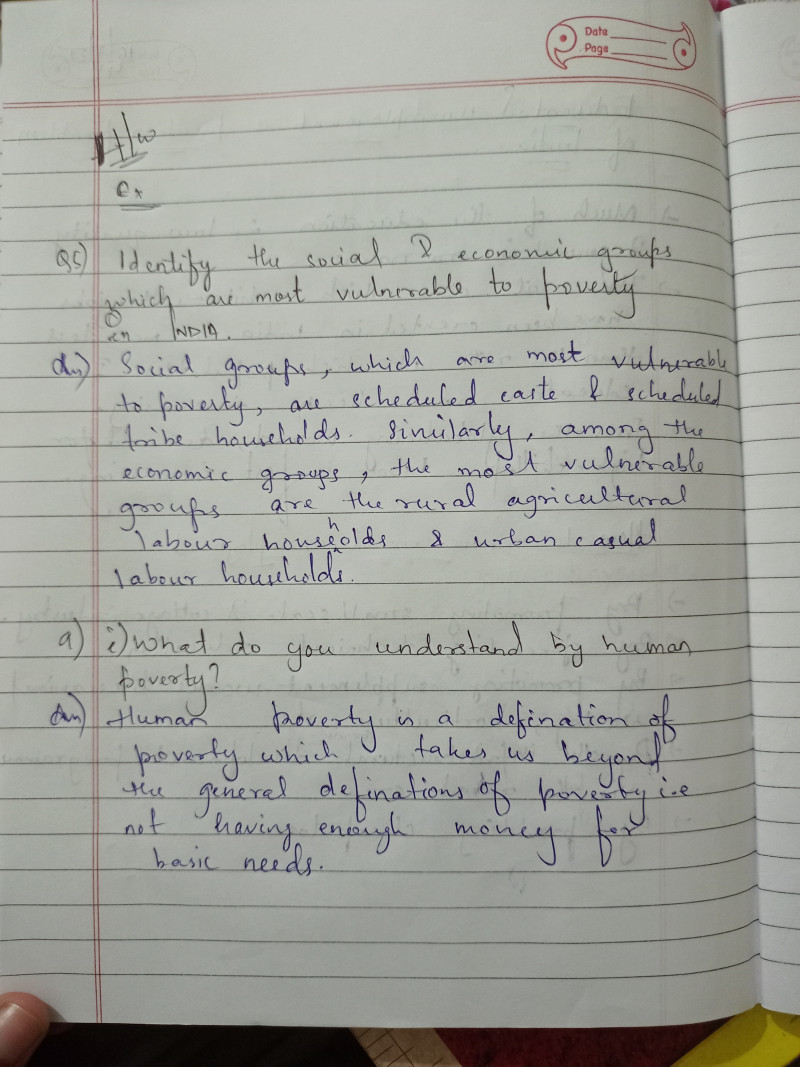 Date
Page
H/w
Ex
Q5) Identify the social & economic groups
which are most vulnerable to poverty
in INDIA.
Ans) Social groups, which are most vulnerable
to poverty, are scheduled caste & scheduled
tribe households. Similarly, among the
economic groups, the most vulnerable
groups are the rural agricultural
labour households & urban casual
labour households.
9) i) What do you understand by human
poverty?
Ans) Human poverty is a defination of
poverty which takes us beyond
the general definations of poverty i.e
not having enough money for
basic needs.